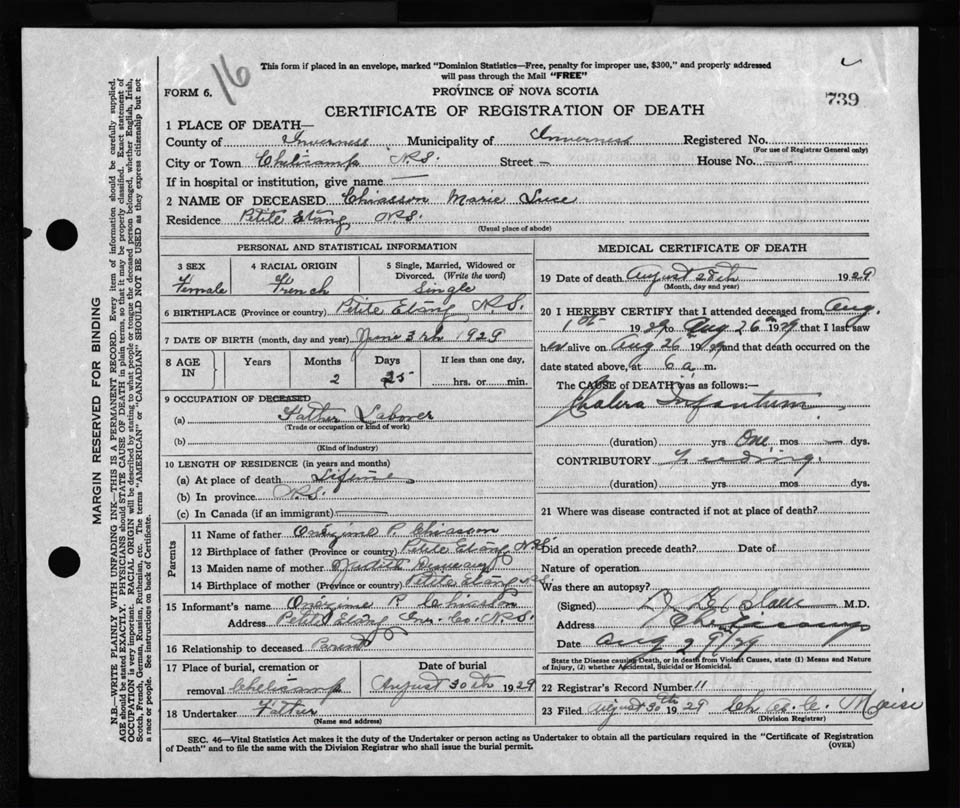 16
This form if placed in an envelope, marked "Dominion Statistics—Free, penalty for improper use, $300," and properly addressed
will pass through the Mail "FREE"
FORM 6.
PROVINCE OF NOVA SCOTIA
739
CERTIFICATE OF REGISTRATION OF DEATH
1 PLACE OF DEATH—
County of Inverness Municipality of Inverness Registered No.
(For use of Registrar General only)
City or Town Cheticamp N.S. Street — House No. —
If in hospital or institution, give name —
2 NAME OF DECEASED Chiasson Marie Luce
Residence Petite Etang N.S.
(Usual place of abode)
PERSONAL AND STATISTICAL INFORMATION
3 SEX 4 RACIAL ORIGIN 5 Single, Married, Widowed or
Divorced. (Write the word)
Female French Single
6 BIRTHPLACE (Province or country) Petite Etang N.S.
7 DATE OF BIRTH (month, day and year) June 3rd 1929
8 AGE IN Years Months Days If less than one day,
2 25 hrs. or min.
9 OCCUPATION OF DECEASED
(a) Father Laborer
(Trade or occupation or kind of work)
(b)
(Kind of industry)
10 LENGTH OF RESIDENCE (in years and months)
(a) At place of death Lifetime
(b) In province N.S.
(c) In Canada (if an immigrant)
Parents
11 Name of father Onezime P. Chiasson
12 Birthplace of father (Province or country) Petite Etang N.S.
13 Maiden name of mother Judith
14 Birthplace of mother (Province or country) Petite Etang N.S.
15 Informant's name Onezime P. Chiasson
Address Petite Etang Inv. Co. N.S.
16 Relationship to deceased Parent
17 Place of burial, cremation or Date of burial
removal Cheticamp August 30th 1929
18 Undertaker Father
(Name and address)
MEDICAL CERTIFICATE OF DEATH
19 Date of death August 28th 1929
(Month, day and year)
20 I HEREBY CERTIFY that I attended deceased from Aug.
1st 1929 to Aug 26th 1929 that I last saw
her alive on Aug 26th 1929 and that death occurred on the
date stated above, at 6 a. m.
The CAUSE of DEATH was as follows:—
Cholera Infantum.
(duration) yrs One mos — dys.
CONTRIBUTORY Feeding.
(duration) yrs. mos. dys.
21 Where was disease contracted if not at place of death?
Did an operation precede death? Date of
Nature of operation
Was there an autopsy?
(Signed) M.D.
Address Cheticamp
Date Aug 29/29
State the Disease causing Death, or in death from Violent Causes, state (1) Means and Nature
of Injury, (2) whether Accidental, Suicidal or Homicidal.
22 Registrar's Record Number 11
23 Filed August 30th 1929 Chas. C.
(Division Registrar)
SEC. 46—Vital Statistics Act makes it the duty of the Undertaker or person acting as Undertaker to obtain all the particulars required in the "Certificate of Registration
of Death" and to file the same with the Division Registrar who shall issue the burial permit. (OVER)
MARGIN RESERVED FOR BINDING
N.B.—WRITE PLAINLY WITH UNFADING INK—THIS IS A PERMANENT RECORD. Every item of information should be carefully supplied.
AGE should be stated EXACTLY. PHYSICIANS should STATE CAUSE OF DEATH in plain terms, so that it may be properly classified. Exact statement of
OCCUPATION is very important. RACIAL ORIGIN will be described by stating to what people or tongue the deceased person belonged, whether English, Irish,
Scotch, French, German, Russian, Ruthenian, etc. The terms "AMERICAN" or "CANADIAN" SHOULD NOT BE USED as they express citizenship but not
a race or people. See instructions on back of Certificate.